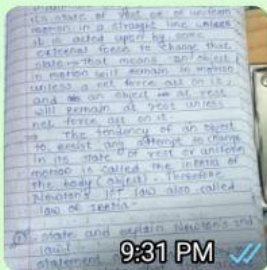 its state of rest or of uniform
motion in a straight line unless
it is acted upon by some
external force to change that
state. That means an object
in motion will remain in motion
unless a net force act on it,
and an object at rest
will remain at rest unless
net force act on it.
The tendency of an object
to resist any attempt to change
in its state of rest or uniform
motion is called the inertia of
the body (object). Therefore
Newton's 1st law also called
law of Inertia-
state and explain Newton's 2nd
law?
statement
9:31 PM